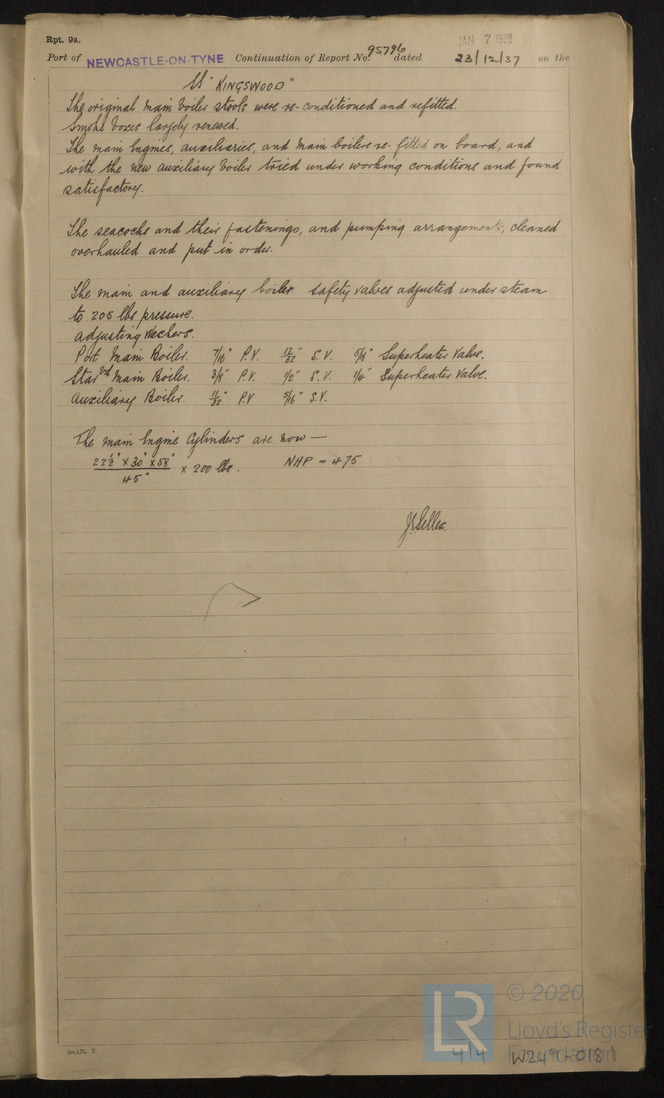 Rpt. 9a.
JAN 7 1938
Port of NEWCASTLE-ON-TYNE Continuation of Report No. 95796 dated 23/12/37 on the
SS "KINGSWOOD"
The original main boiler stools were re-conditioned and refitted.
Smoke boxes largely renewed.
The main engines, auxiliaries, and main boilers re-fitted on board, and
with the new auxiliary boiler tried under working conditions and found
satisfactory.
The seacocks and their fastenings, and pumping arrangements, cleaned
overhauled and put in order.
The main and auxiliary boiler safety valves adjusted under steam
to 205 lbs pressure.
Adjusting Washers.
Port Main Boiler. 7/16" P.V. 17/32" S.V. 5/16" Superheater Valve.
Starbd Main Boiler. 3/8" P.V. 1/2" S.V. 1/4" Superheater Valve.
Auxiliary Boiler. 11/32" P.V. 5/16" S.V.
The Main Engine Cylinders are now —
22½" × 30" × 58" / 45" × 200 lbs. NHP = 475
© 2020
Lloyd's Register
Foundation
4/4 W249-0181